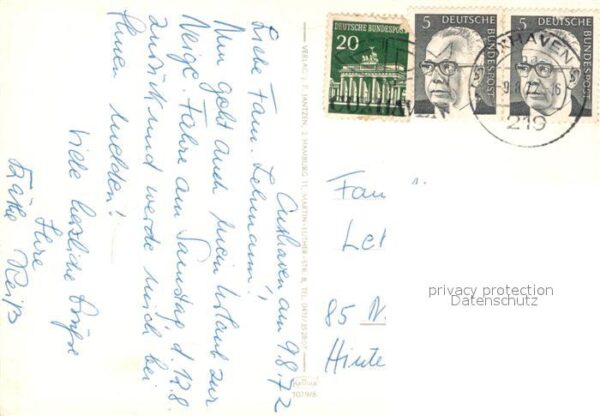 Cuxhaven, am 9.8.72
Liebe Fam. Lehmann!
Nun geht auch mein Urlaub zur
Neige. Fahre am Samstag, d. 12.8.
zurück und werde mich bei
Ihnen melden!
Viele herzliche Grüße
Ihre
Käthe Reiß
VERLAG J. F. JANTZEN, 2 HAMBURG 11, MARTIN-LUTHER-STR. 8, TEL.
DEUTSCHE BUNDESPOST
20
5
DEUTSCHE
BUNDESPOST
5
DEUTSCHE
BUNDESPOST
CUXHAVEN
9.8.72
219
Fam
Leh
85 N.
Hinte
privacy protection
Datenschutz